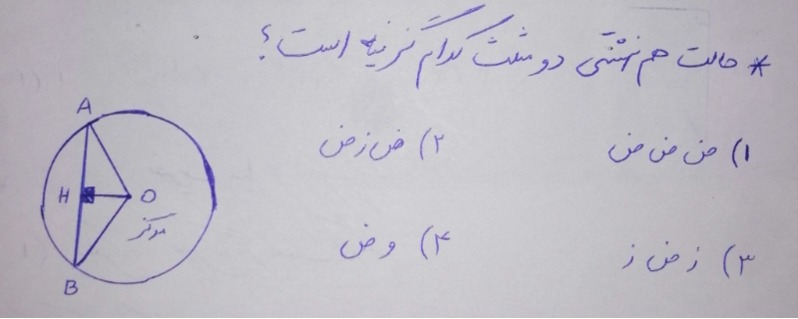 * حالت هم نهشتی دو مثلث کدام گزینه است؟
۱) ض ض ض
۲) ض ز ض
۳) ز ض ز
۴) و ض
A
H
O
مرکز
B